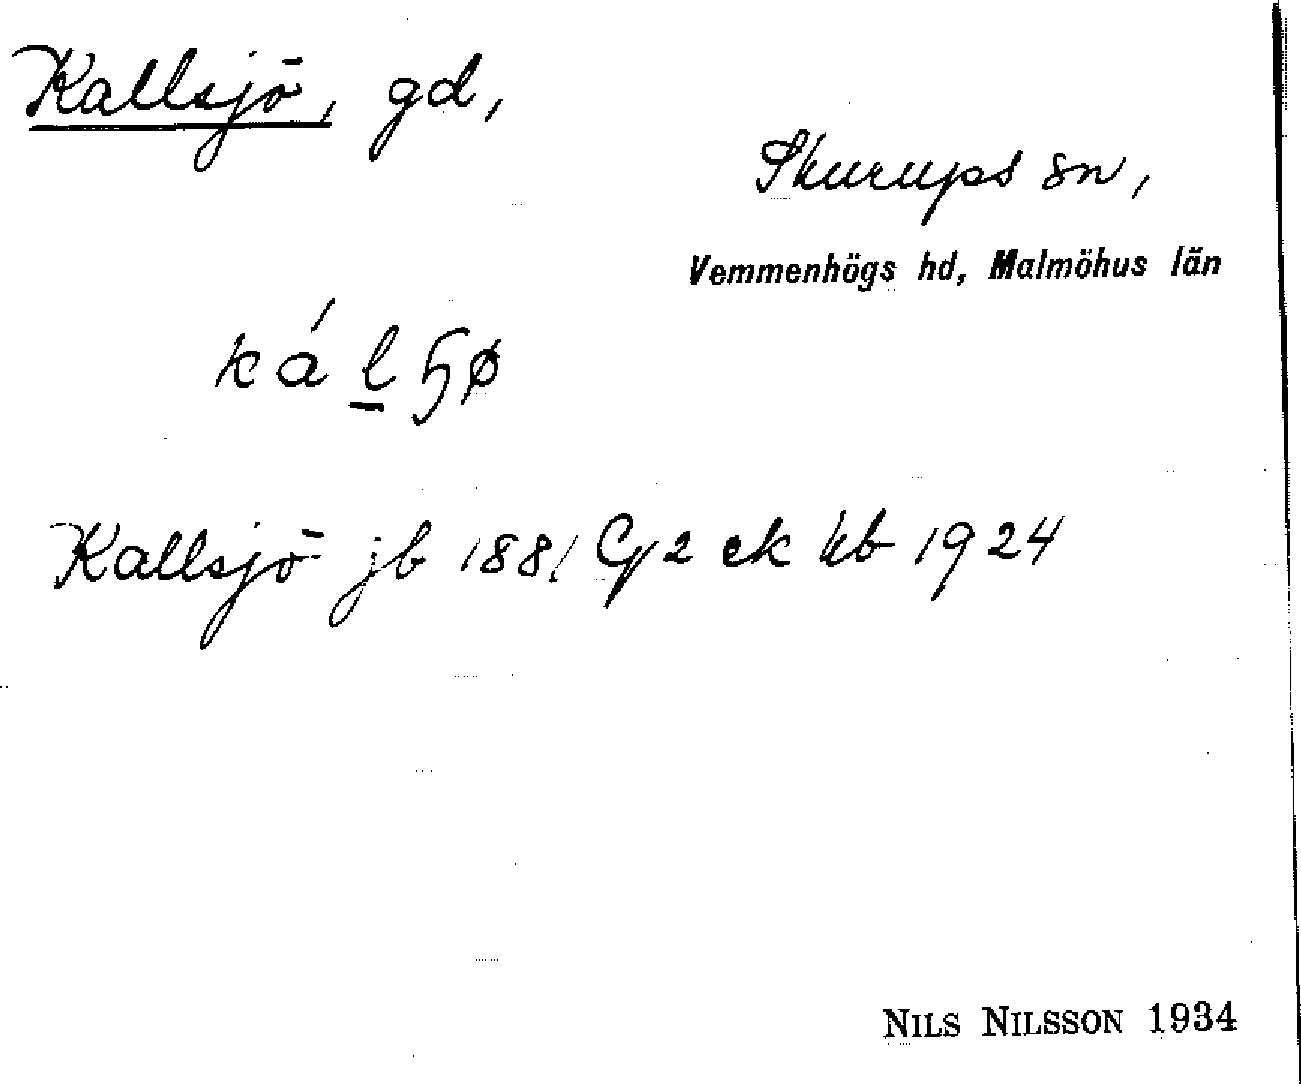 Kallsjö, gd,
Skurups sn,
Vemmenhögs hd, Malmöhus län
ká l̲ ɧø
Kallsjö jb 1881 Gj2 ek kb 1924
NILS NILSSON 1934